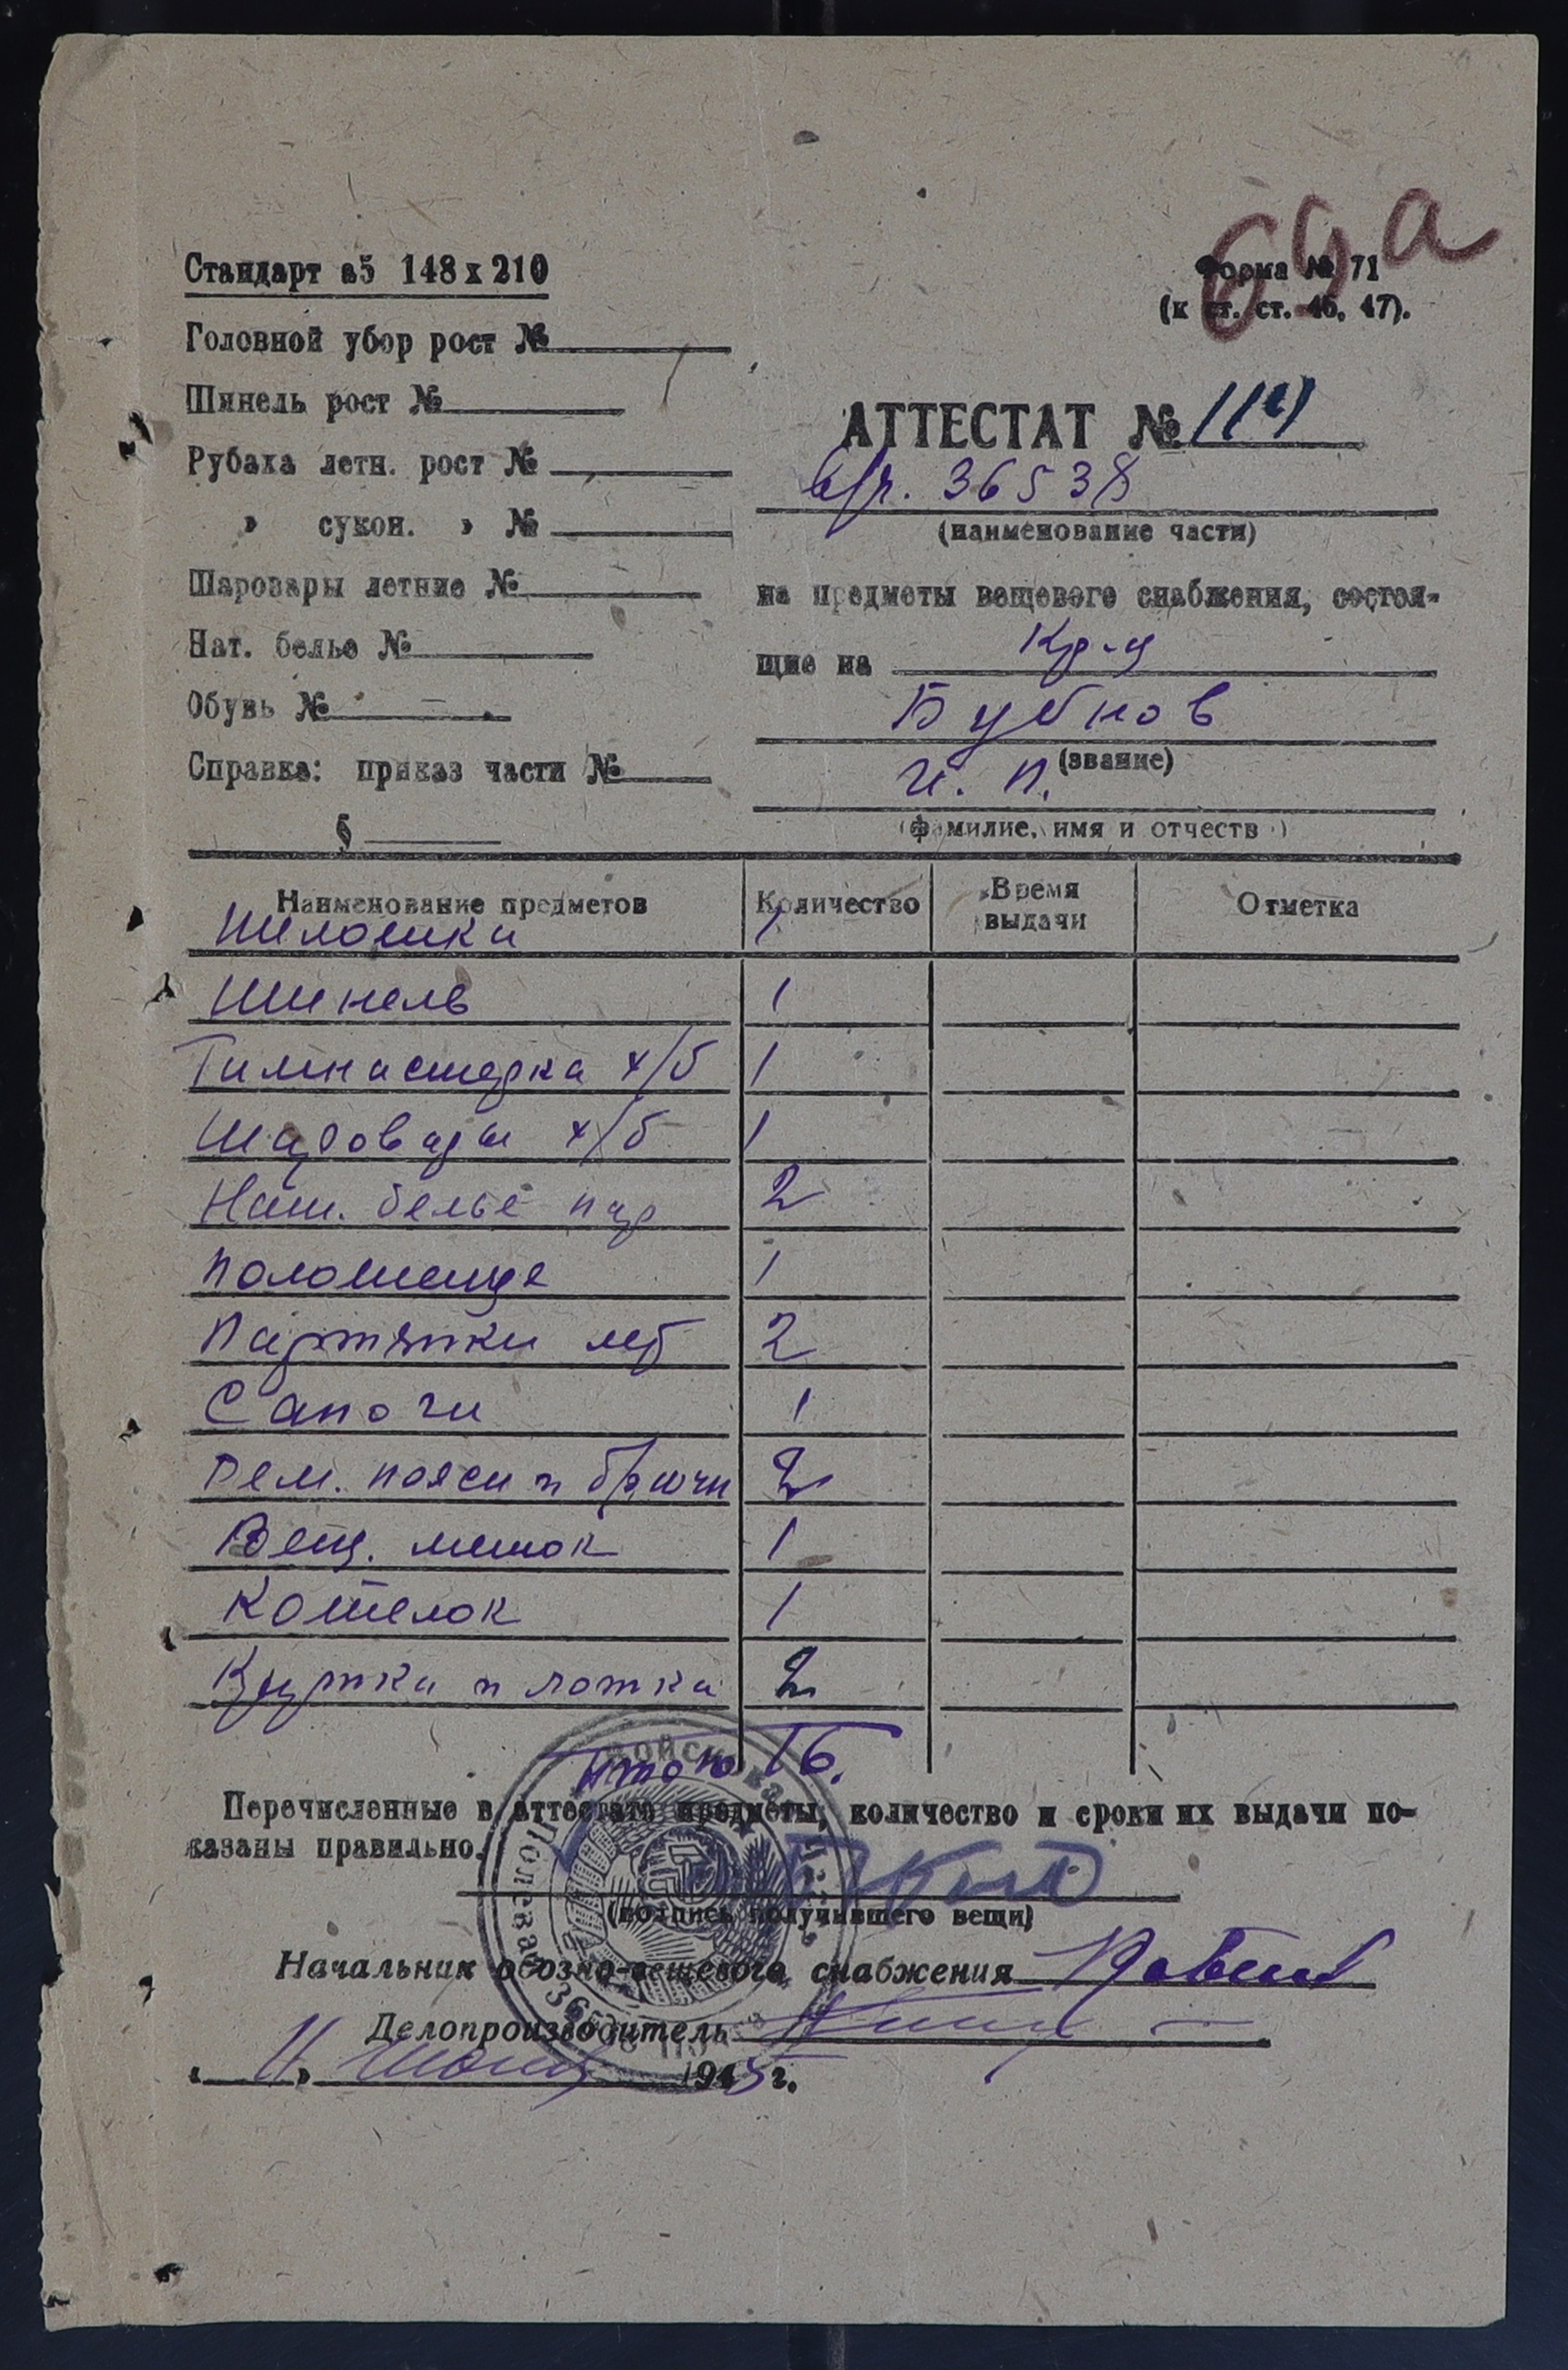 69а
Стандарт а5 148х210
Форма № 71
(к ст. ст. 46, 47).
Головной убор рост №
Шинель рост №
Рубаха летн. рост №
» сукон. » №
Шаровары летние №
Нат. белье №
Обувь №
Справка: приказ части №
§
АТТЕСТАТ №
в/ч. 36538
(наименование части)
на предметы вещевого снабжения, состоя-
щие на Кр-ц
Бубнов
(звание)
И. П.
(фамилие, имя и отчеств )
Наименование предметов Количество Время выдачи Отметка
Пилотка 1
Шинель 1
Гимнастерка х/б 1
Шаровары х/б 1
Нат. бельё пар 2
Полотенце 1
Партянки лет 2
Сапоги 1
Рем. поясн и брючн 2
Вещ. мешок 1
Котелок 1
Кружка и ложка 2
Итого 16.
Перечисленные в аттестате предметы, количество и сроки их выдачи по-
казаны правильно.
(подпись получившего вещи)
Начальник обозно-вещевого снабжения
Делопроизводитель
„ 11 " 1945 г.
Войсковая часть
Полевая